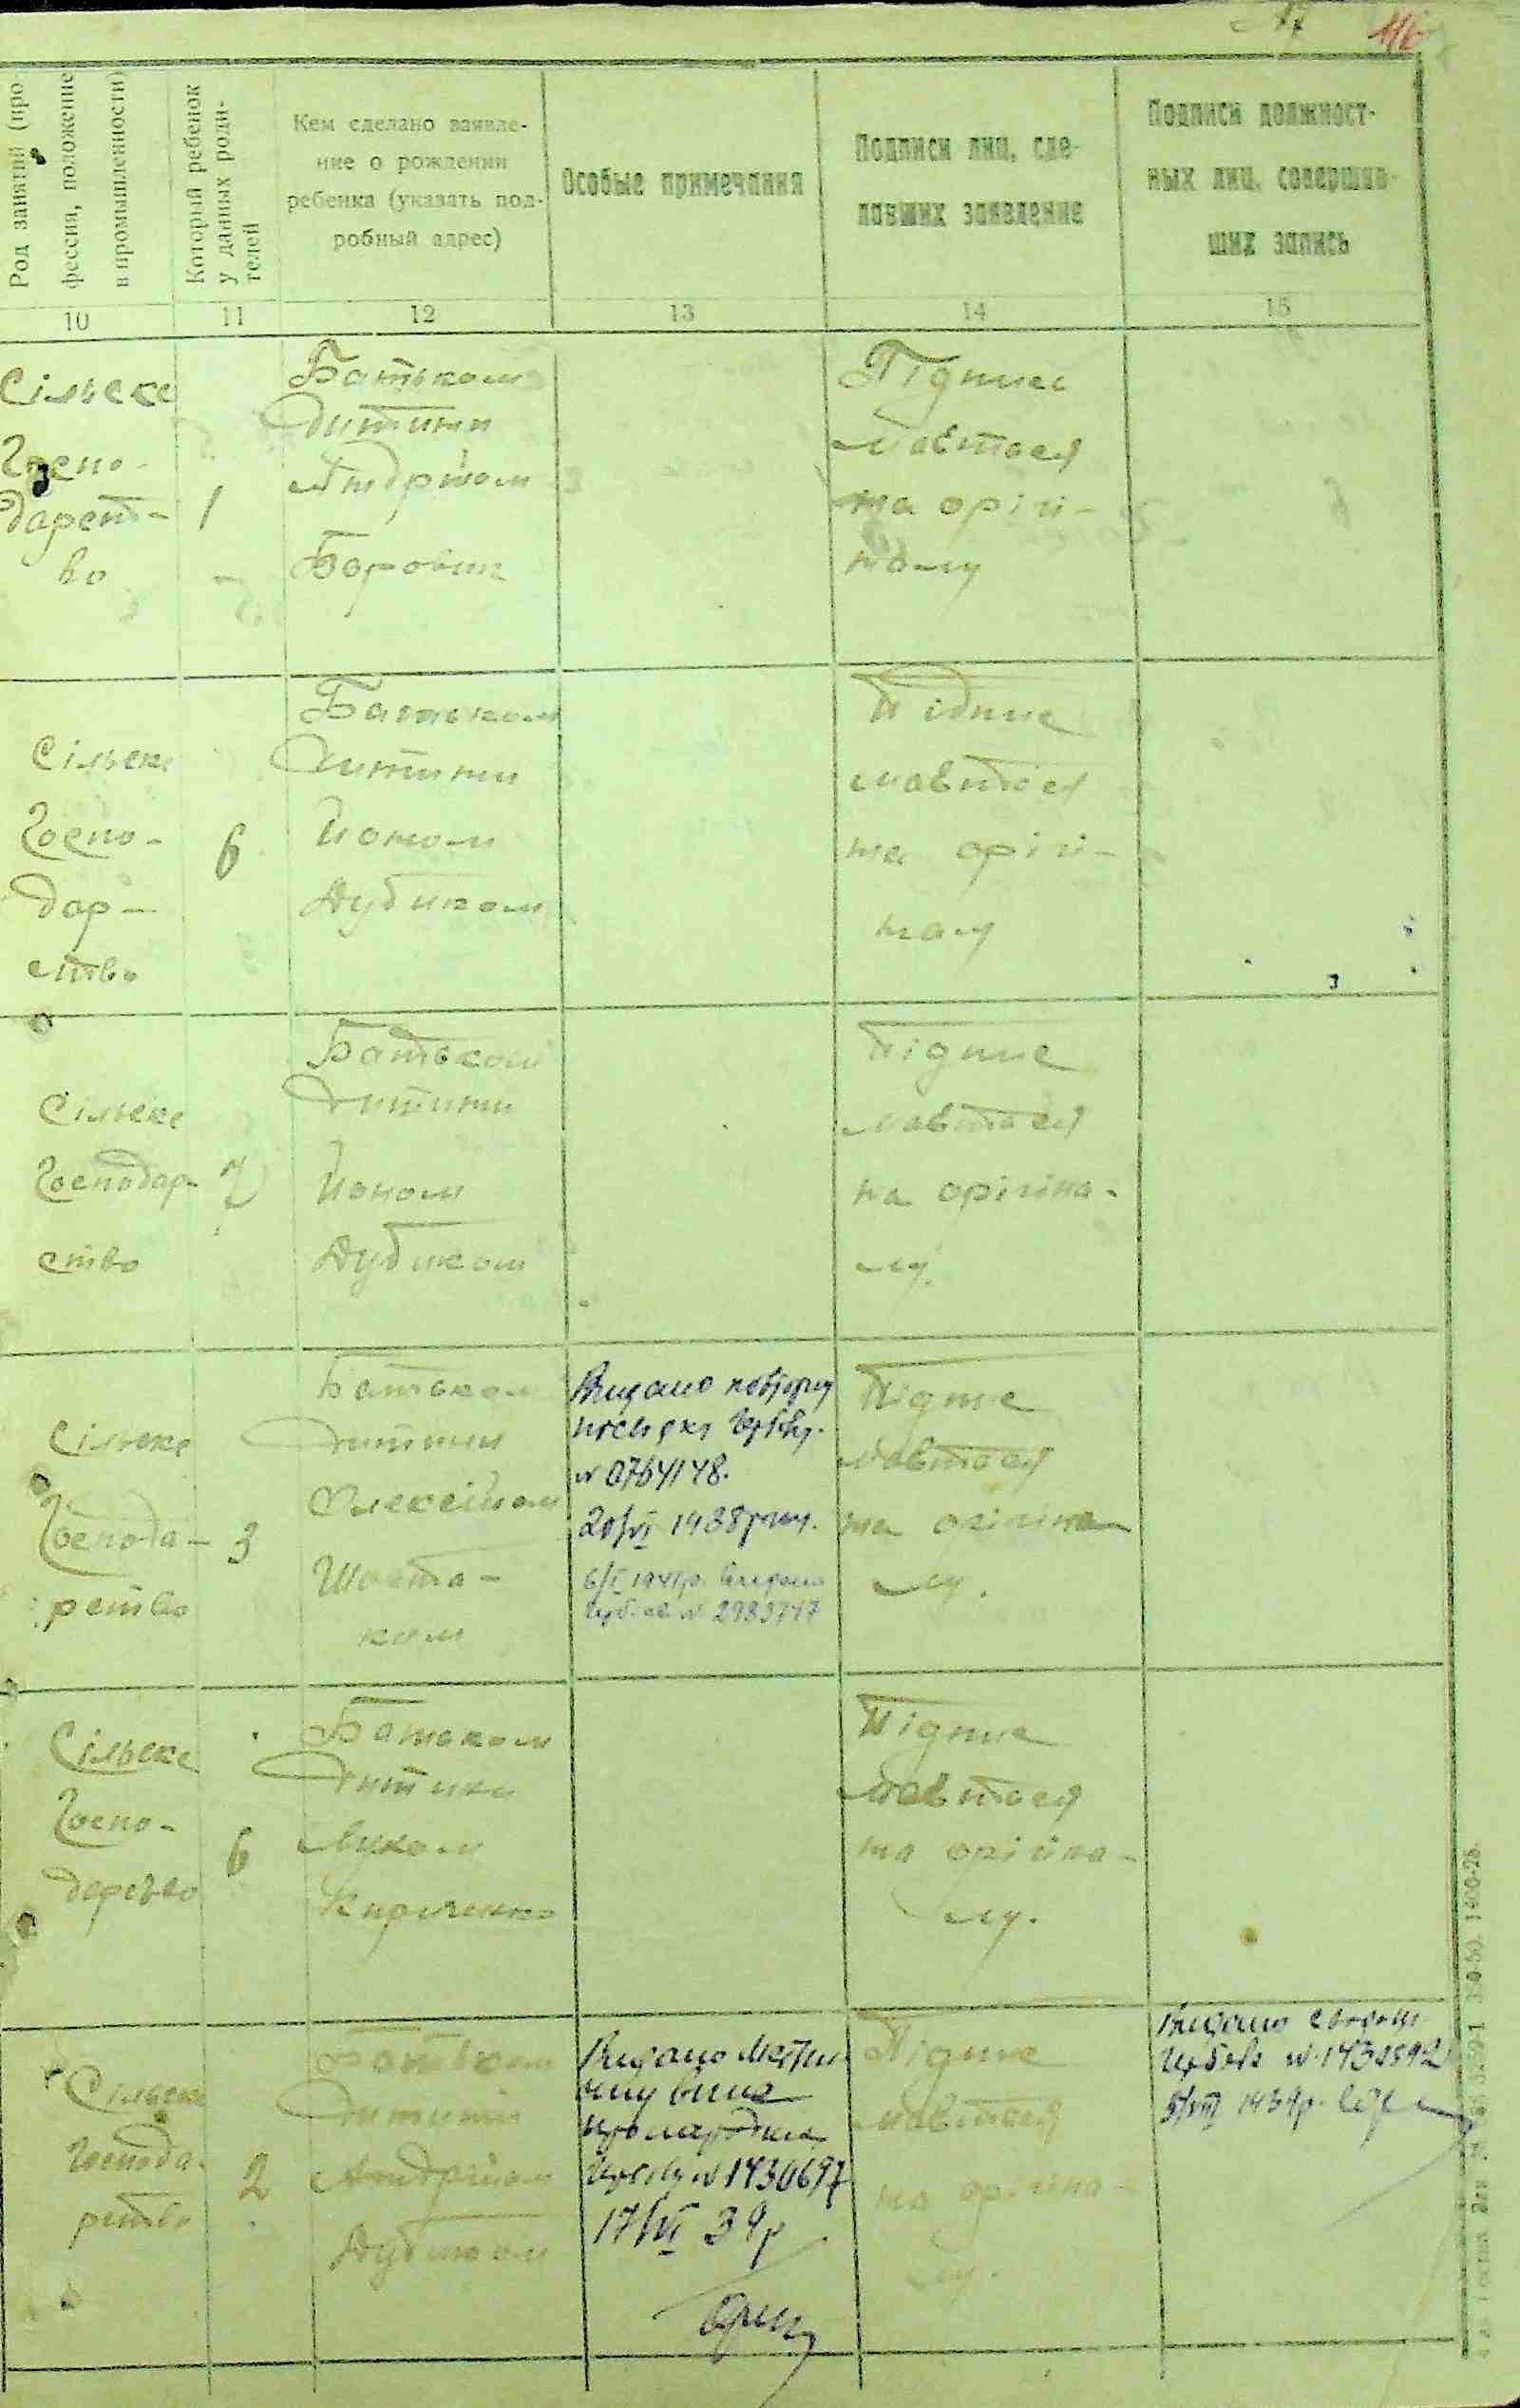 116
Род занятий (про-
фессия, положение
в промышленности)
Который ребенок
у данных роди-
телей
Кем сделано заявле-
ние о рождении
ребенка (указать под-
робный адрес)
Особые примечания
Подписи лиц, сде-
лавших заявление
Подписи должност-
ных лиц, совершив-
ших запись
10
11
12
13
14
15
Сільске
Госпо-
дарст-
во
1
Батьком
дитини
Андрійом
Боровик
Підпис
мавтося
на оригі-
налу
Сільске
Госпо-
дар-
ство
6
Батьком
Дитини
Йоном
Дубиком
Підпис
мавтося
на оригі-
налу
Сільске
Господар-
ство
7
Батьком
Дитини
Йоном
Дубиком
Підпис
мавтося
на оригіна-
лу.
Сільске
Господа-
рство
3
Батьком
Дитини
Олексійом
Шоста-
ком
Видано повторну
№ 0764148.
20/VI 1938 року.
6/I 1941р. Видано
№ 2983747
Підпис
мавтося
на оригіна
лу.
Сільске
Госпо-
дарство
6
Батьком
Дитини
Луком
Кириченко
Підпис
мавтося
на оригіна-
лу.
Сільске
Господа-
рство
2
Батьком
Дитини
Андрійом
Дубиком
Видано
про народження
№ 1430697
17/VI 39р.
Підпис
мавтося
на оригіна-
лу.
Видано